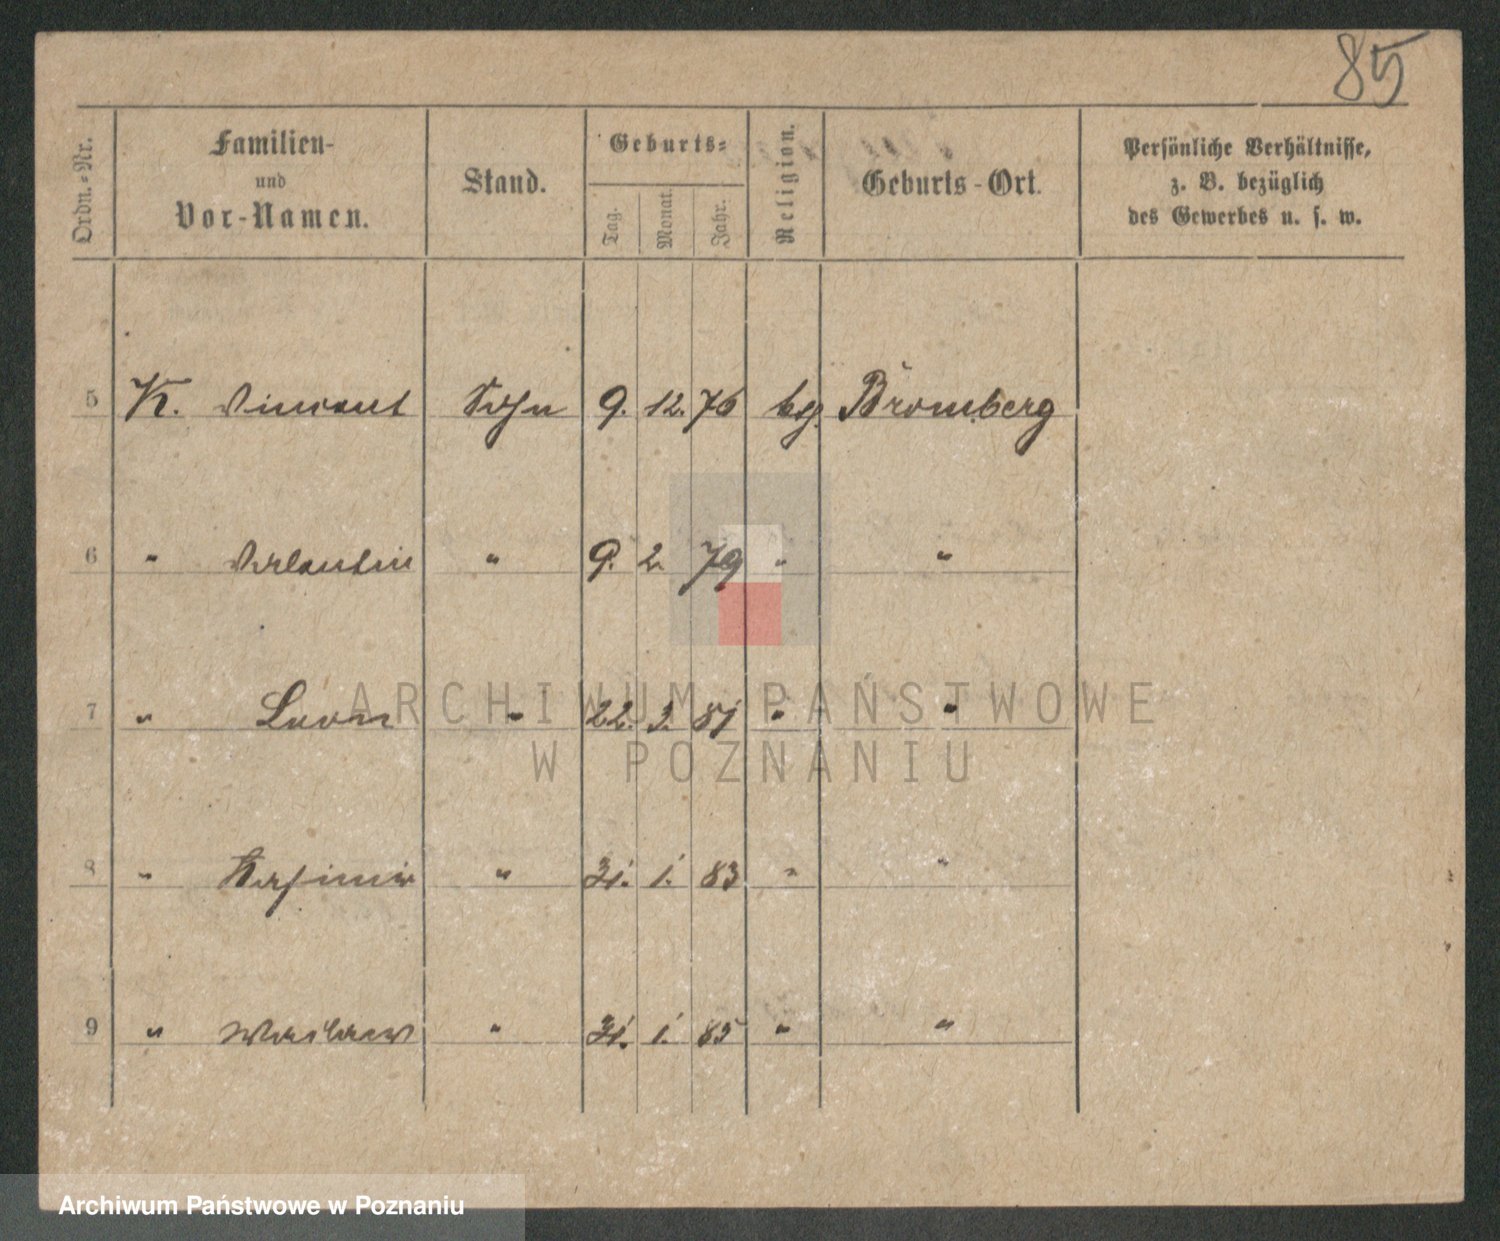 85
Ordn.-Nr. Familien- und Vor-Namen. Stand. Geburts- Tag. Monat. Jahr. Religion. Geburts-Ort. Persönliche Verhältnisse, z. B. bezüglich des Gewerbes u. s. w.
5 K. Vincent Sohn 9. 12. 76 Bromberg
6 " Valentin " 9. 2. 79 " "
7 " Leon " 22. 3. 81 " "
8 " Kasimir " 31. 1. 83 " "
9 " Waclaw " 31. 1. 85 " "
ARCHIWUM PAŃSTWOWE
W POZNANIU
Archiwum Państwowe w Poznaniu